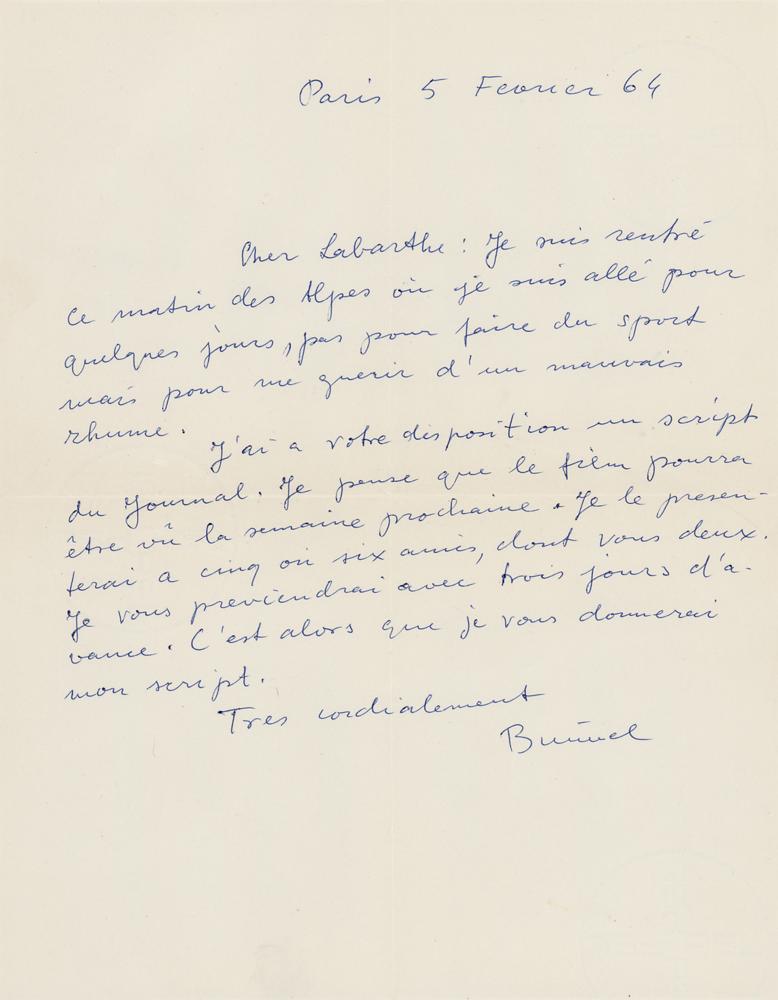 Paris 5 Fevrier 64
Cher Labarthe : Je suis rentré
ce matin des Alpes où je suis allé pour
quelques jours, pas pour faire du sport
mais pour me guerir d'un mauvais
rhume.
J'ai a votre disposition un script
du Journal. Je pense que le film pourra
être vû la semaine prochaine. Je le presen-
terai a cinq ou six amis, dont vous deux.
Je vous previendrai avec trois jours d'a-
vance. C'est alors que je vous donnerai
mon script.
Tres cordialement
Buñuel